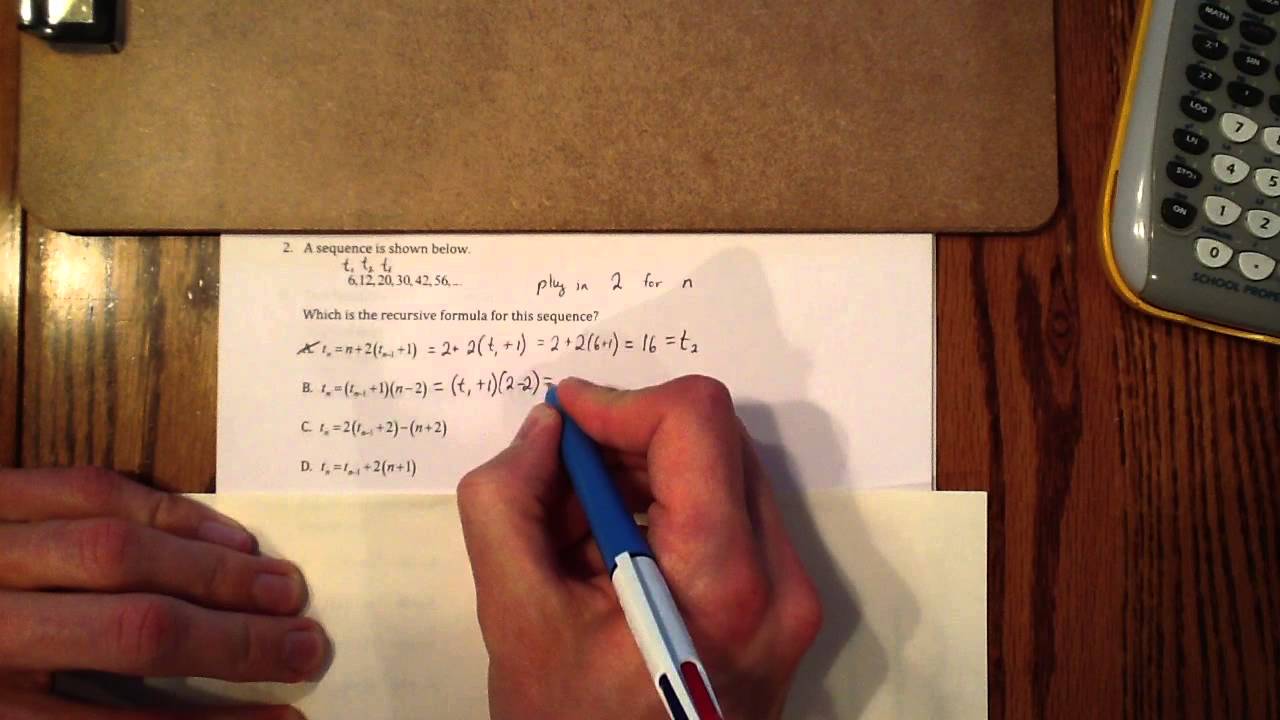 2. A sequence is shown below.
t₁ t₂ t₁
6, 12, 20, 30, 42, 56, ...
plug in 2 for n
Which is the recursive formula for this sequence?
A. tₙ = n + 2(tₙ₋₁ + 1) = 2 + 2(t₁ + 1) = 2 + 2(6+1) = 16 = t₂
B. tₙ = (tₙ₋₁ + 1)(n − 2) = (t₁ + 1)(2−2) =
C. tₙ = 2(tₙ₋₁ + 2) − (n + 2)
D. tₙ = tₙ₋₁ + 2(n + 1)
MATH
SIN
LOG
7
LN
4
5
STO›
ON
1
2
0
.
SCHOOL PROPE